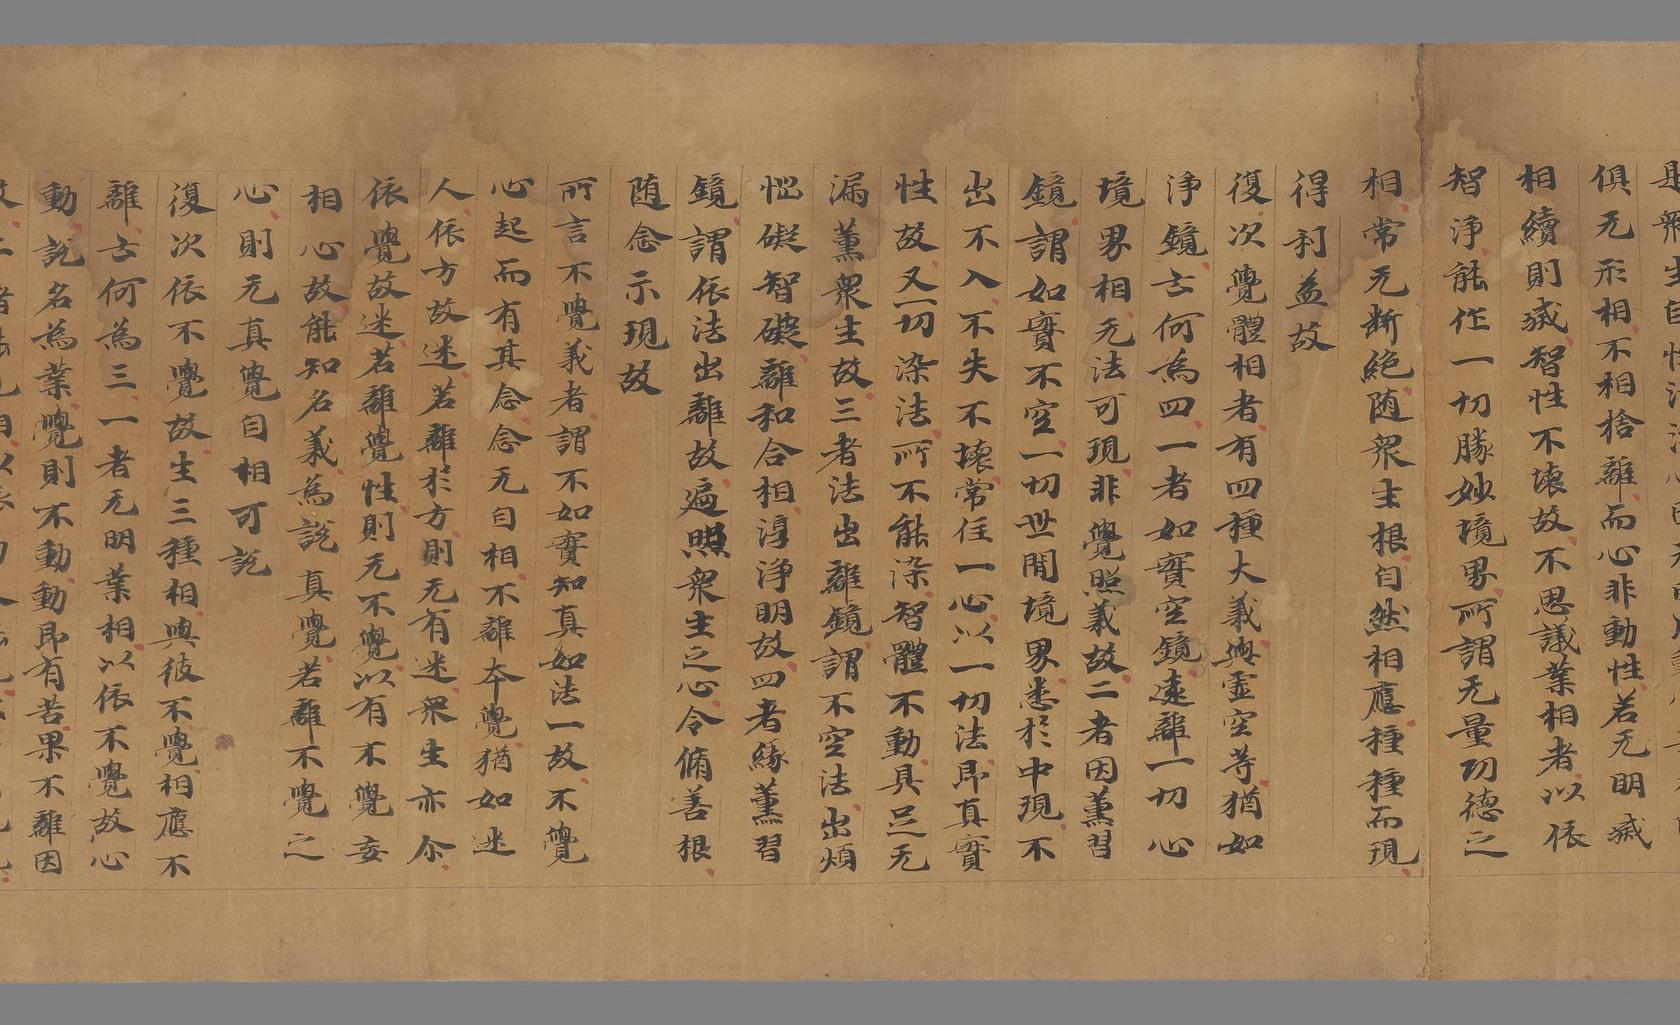 是衆生自性清淨心因无明風動心與无明
俱无形相不相捨離而心非動性若无明滅
相續則滅智性不壞故不思議業相者以依
智淨能作一切勝妙境界所謂无量功德之
相常无斷絕随衆生根自然相應種種而現
得利益故
復次覺體相者有四種大義與虛空等猶如
淨鏡云何為四一者如實空鏡遠離一切心
境界相无法可現非覺照義故二者因薰習
鏡謂如實不空一切世間境界悉於中現不
出不入不失不壞常住一心以一切法即真實
性故又一切染法所不能染智體不動具足无
漏薰衆生故三者法出離鏡謂不空法出煩
惱礙智礙離和合相淳淨明故四者緣薰習
鏡謂依法出離故遍照衆生之心令脩善根
随念示現故
所言不覺義者謂不如實知真如法一故不覺
心起而有其念念无自相不離本覺猶如迷
人依方故迷若離於方則无有迷衆生亦尒
依覺故迷若離覺性則无不覺以有不覺妄
相心故能知名義為說真覺若離不覺之
心則无真覺自相可說
復次依不覺故生三種相與彼不覺相應不
離云何為三一者无明業相以依不覺故心
動說名為業覺則不動動即有苦果不離因
故二者